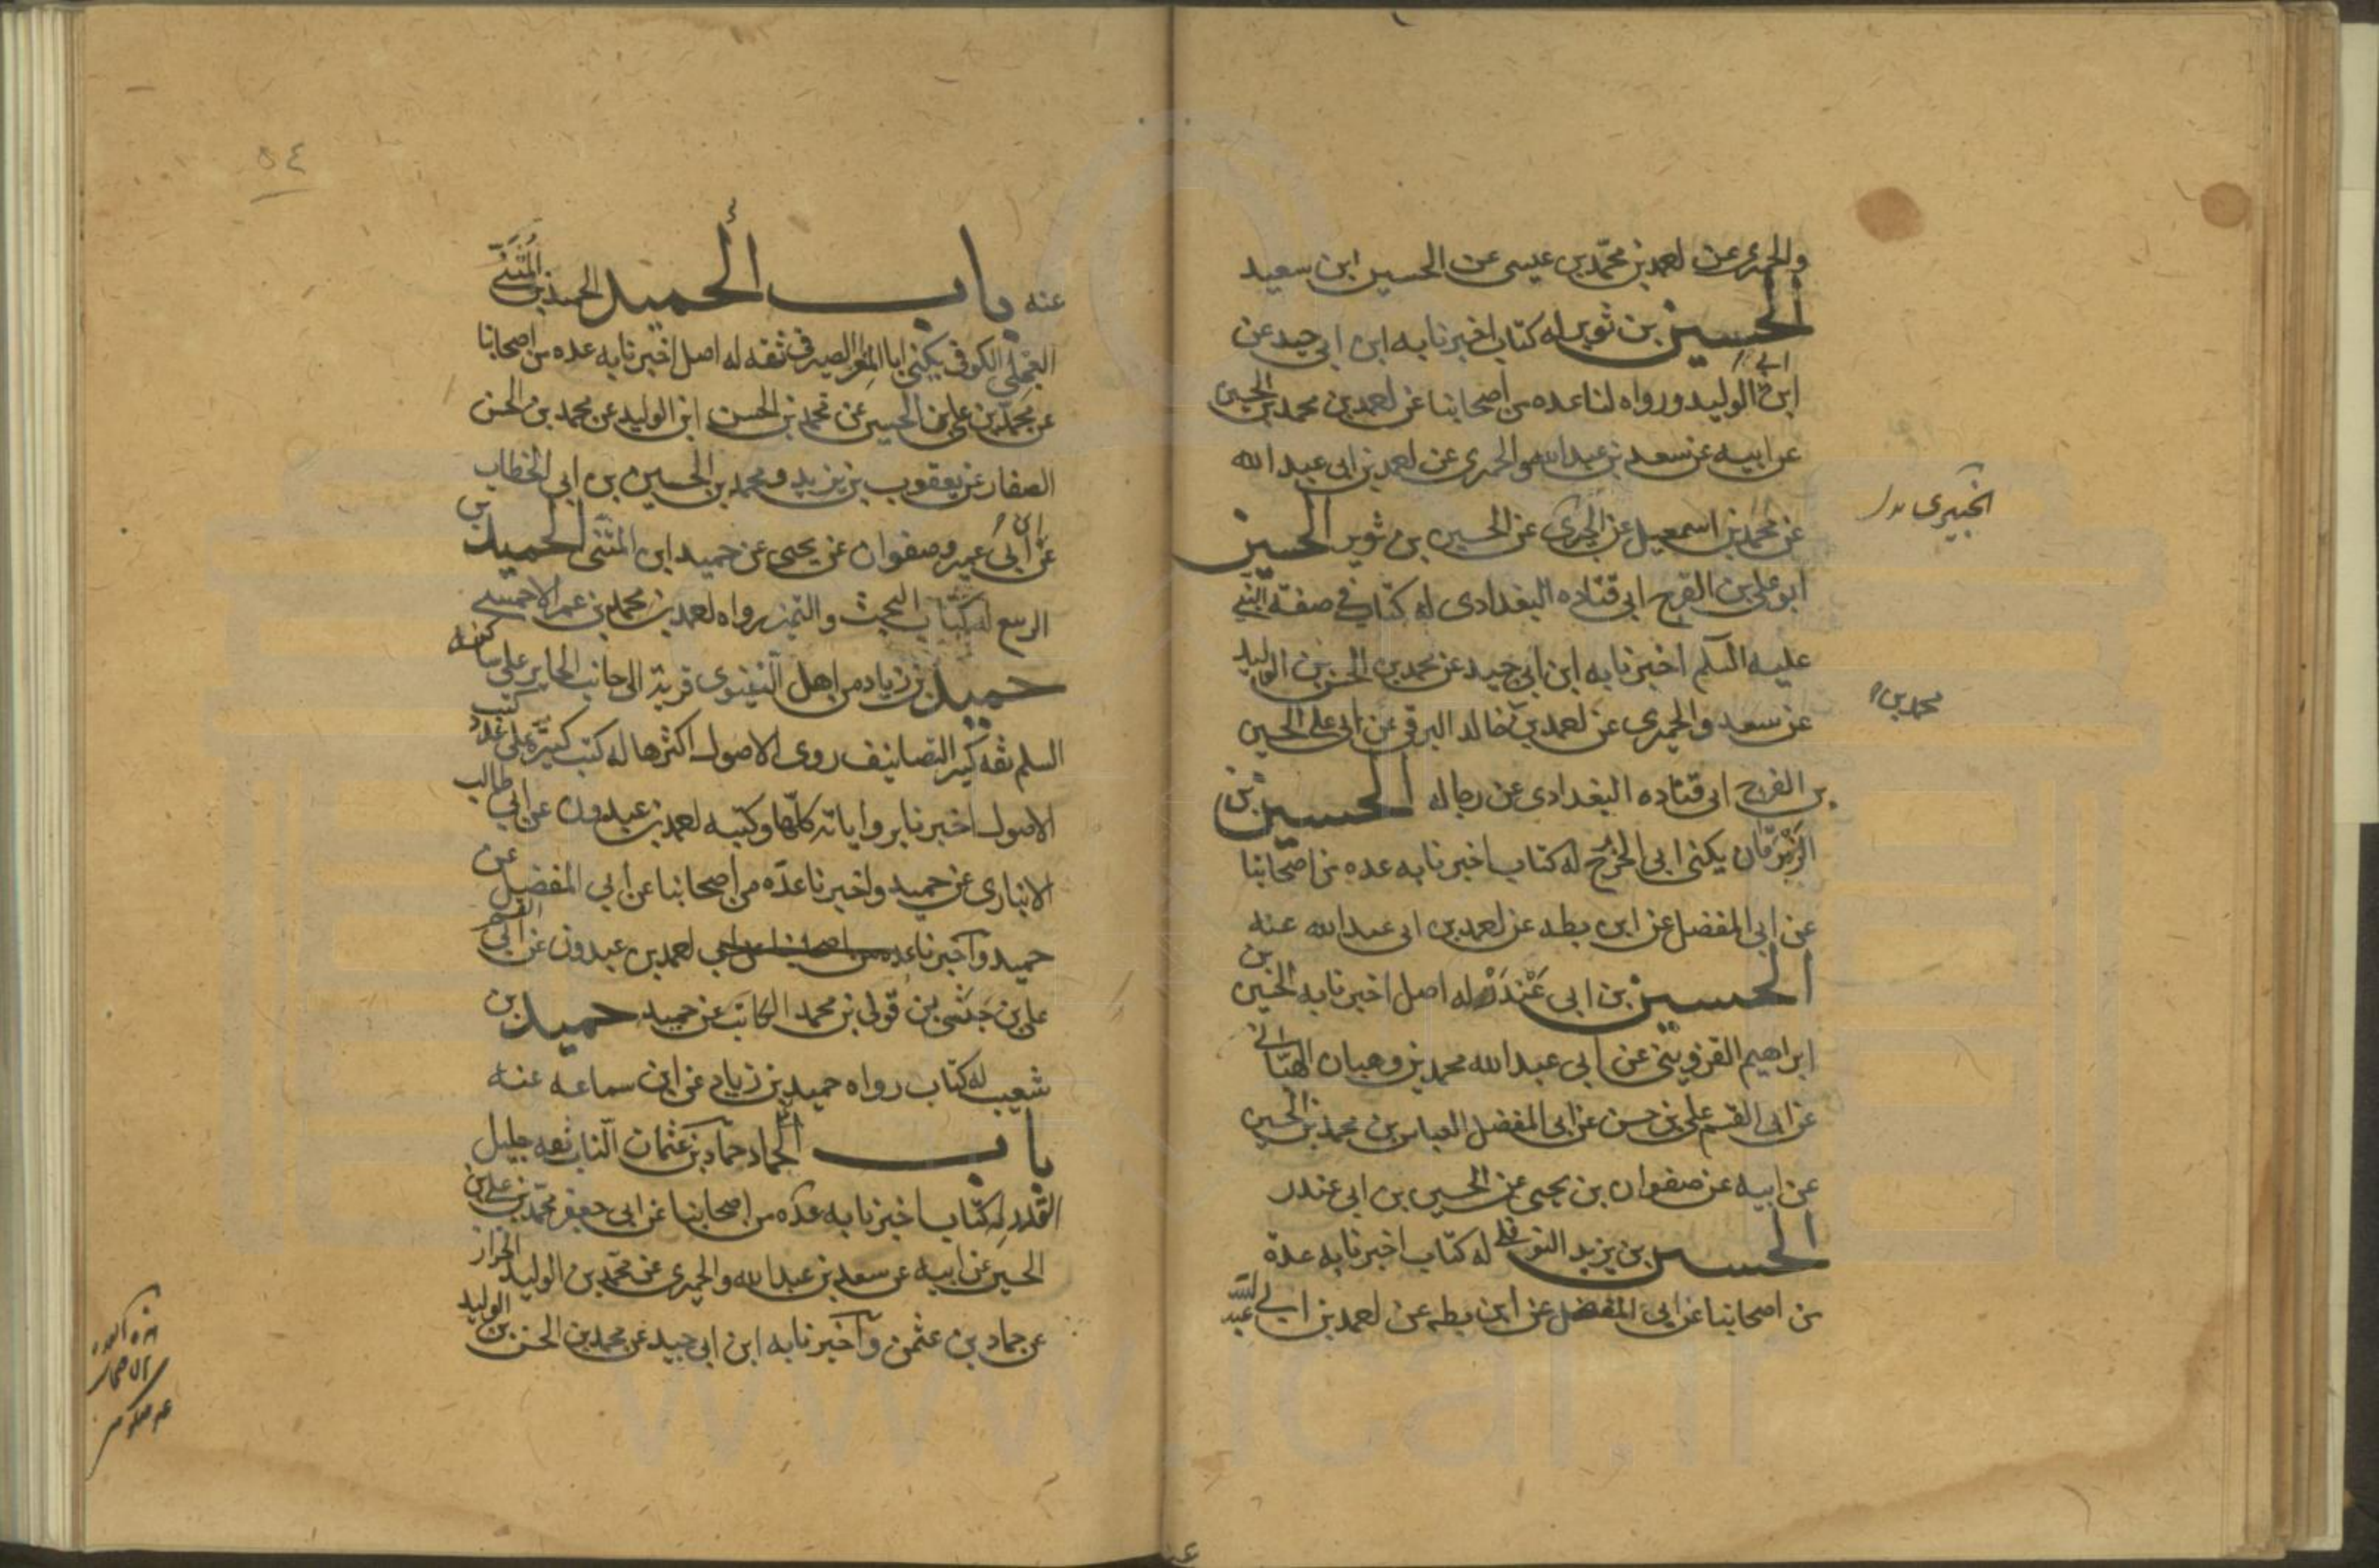 والحميرى عن احمد بن محمّد بن عيسى عن الحسين ابن سعيد
الحسين بن ثوير له كتاب اخبرنا به ابن ابى جيد عن
ابن الوليد ورواه لنا عده من اصحابنا عن احمد بن محمد بن الحسين
عن ابيه عن سعد بن عبد الله والحميرى عن احمد بن ابى عبد الله
الخيبرى
عن محمد بن اسمعيل عن الخيبرى عن الحسين بن ثوير الحسين
ابو على بن الفرج ابى قتاده البغدادى له كتاب فى صفة النبى
عليه السلم اخبرنا به ابن ابى جيد عن محمد بن الحسن بن الوليد
محمد بن
عن سعد والحميرى عن احمد بن خالد البرقى عن ابى على الحسين
بن الفرج ابى قتاده البغدادى عن رجاله الحسين بن
الزبرقان يكنى ابى الخزرج له كتاب اخبرنا به عده من اصحابنا
عن ابى المفضل عن ابن بطه عن احمد بن ابى عبد الله عنه
الحسين بن ابى غندر له اصل اخبرنا به الحسين بن
ابراهيم القزوينى عن ابى عبد الله محمد بن وهبان الهنائى
عن ابى القسم على بن حسن عن ابى المفضل العباس بن محمد بن الحسين
عن ابيه عن صفوان بن يحيى عن الحسين بن ابى غندر
الحسين بن يزيد النوفلى له كتاب اخبرنا به عدة
من اصحابنا عن ابى المفضل عن ابن بطه عن احمد بن ابى عبد الله
٥٤
عنه باب الحميد الحميد بن المثنى
العجلى الكوفى يكنى ابا المغرا الصيرفى ثقه له اصل اخبرنا به عده من اصحابنا
عن محمد بن على بن الحسين عن محمد بن الحسن ابن الوليد عن محمد بن الحسن
الصفار عن يعقوب بن يزيد ومحمد بن الحسين بن ابى الخطاب
عن ابن ابى عمير وصفوان عن يحيى عن حميد ابن المثنى الحميد بن
الربيع له كتاب البحث والتميز رواه احمد بن محمد بن عمر الاحمسى
حميد بن زياد من اهل النينوى قرية الى جانب الحاير على ساكنه
السلم ثقه كثير التصانيف روى الاصول اكثرها له كتب كثيرة على عدد كتب
الاصول اخبرنا برواياته كلها وكتبه احمد بن عبدون عن ابى طالب
الانبارى عن حميد واخبرنا عدّه من اصحابنا عن ابى المفضل عن
حميد وآخبرنا عده من اصحابنا عن ابى احمد بن عبدون عن ابى القسم
على بن حبشى بن قونى بن محمد الكاتب عن حميد حميد بن
شعيب له كتاب رواه حميد بن زياد عن ابن سماعه عنه
باب الحماد حمّاد بن عثمان الناب ثقه جليل
القدر له كتاب اخبرنا به عده من اصحابنا عن ابى جعفر محمّد بن على بن
الحسين عن ابيه عن سعد بن عبد الله والحميرى عن محمّد بن الوليد الخزاز
عن حماد بن عثمن وآخبرنا به ابن ابى جيد عن محمد بن الحسن بن الوليد